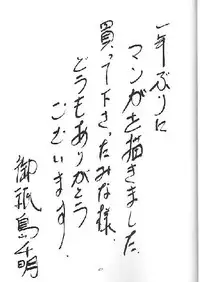 一年ぶりに
マンガを描きました
買って下さったみな様
どうもありがとう
ございます。
御祇島千明